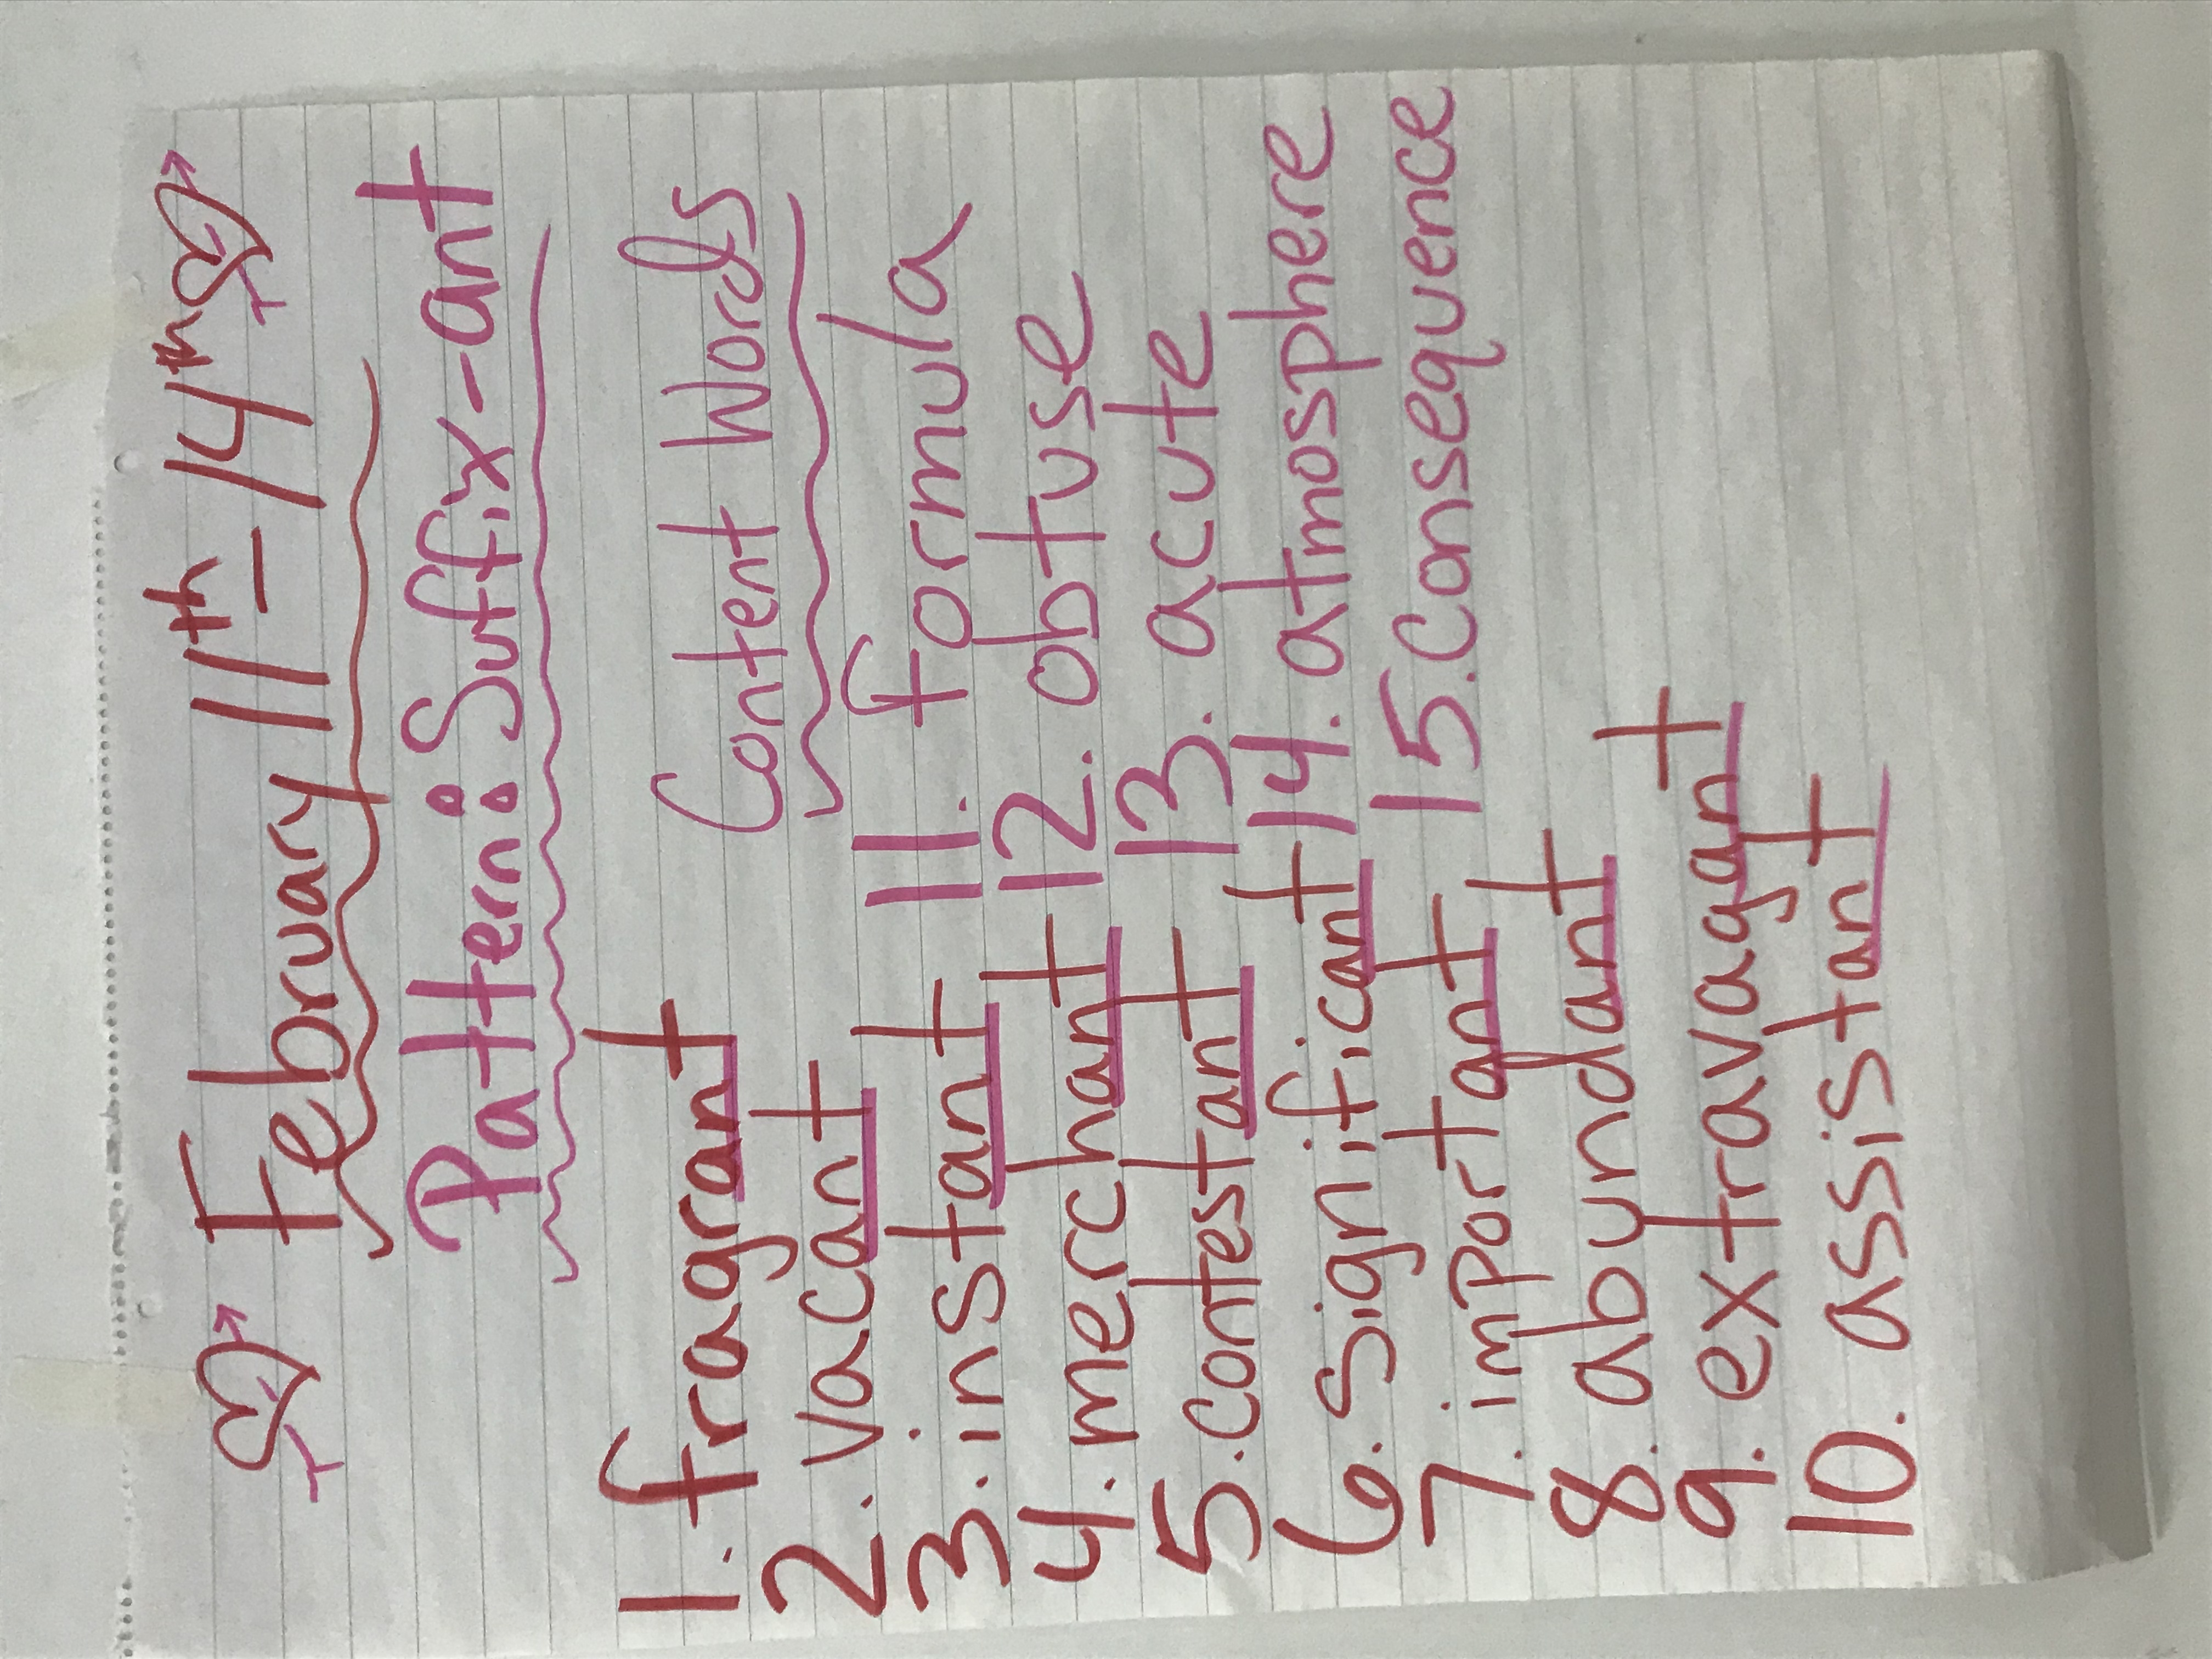 February 11th - 14th
Pattern: Suffix -ant
Content Words
1. fragrant
2. vacant
3. instant
4. merchant
5. contestant
6. significant
7. important
8. abundant
9. extravagant
10. assistant
11. formula
12. obtuse
13. acute
14. atmosphere
15. Consequence